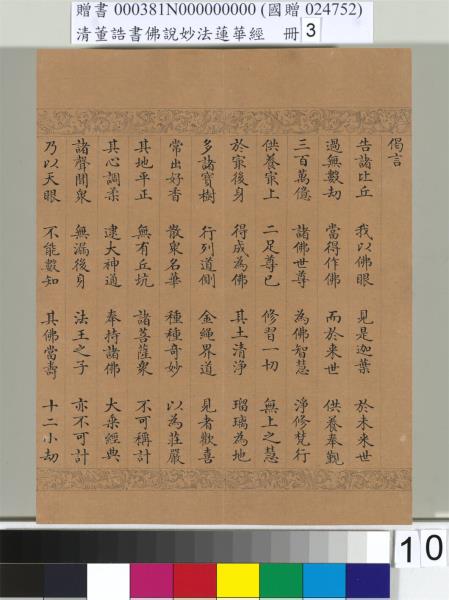 贈書 000381N000000000 (國贈 024752)
清董誥書佛說妙法蓮華經 冊 3
偈言
告諸比丘 我以佛眼 見是迦葉 於未來世
過無數劫 當得作佛 而於來世 供養奉覲
三百萬億 諸佛世尊 為佛智慧 淨修梵行
供養㝡上 二足尊已 修習一切 無上之慧
於㝡後身 得成為佛 其土清淨 瑠璃為地
多諸寶樹 行列道側 金繩界道 見者歡喜
常出好香 散眾名華 種種奇妙 以為莊嚴
其地平正 無有丘坑 諸菩薩眾 不可稱計
其心調柔 逮大神通 奉持諸佛 大乘經典
諸聲聞眾 無漏後身 法王之子 亦不可計
乃以天眼 不能數知 其佛當壽 十二小劫
10